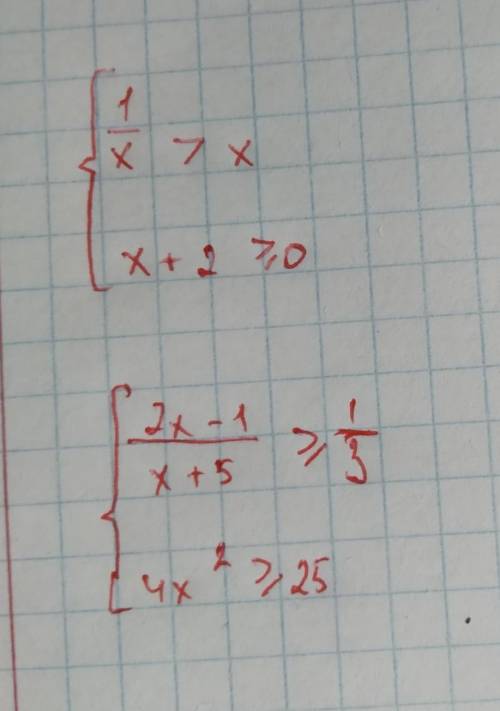 1/x > x
x + 2 ⩾ 0
(2x - 1)/(x + 5) ⩾ 1/3
4x² ⩾ 25